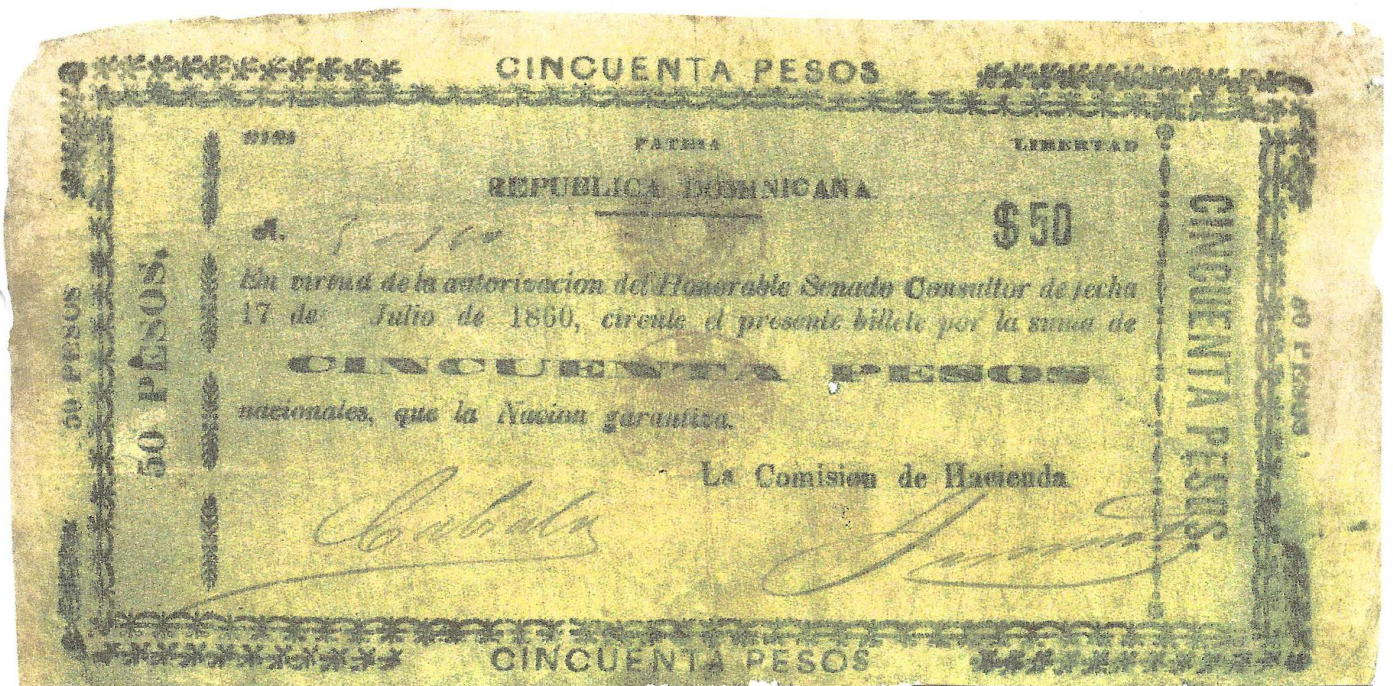 CINCUENTA PESOS
DIOS PATRIA LIBERTAD
REPUBLICA DOMINICANA
$50
En virtud de la autorizacion del Honorable Senado Consultor de fecha
17 de Julio de 1860, circule el presente billete por la suma de
CINCUENTA PESOS
nacionales, que la Nacion garantiza.
La Comision de Hacienda
50 PESOS
50 PESOS.
CINCUENTA PESOS.
50 PESOS
CINCUENTA PESOS